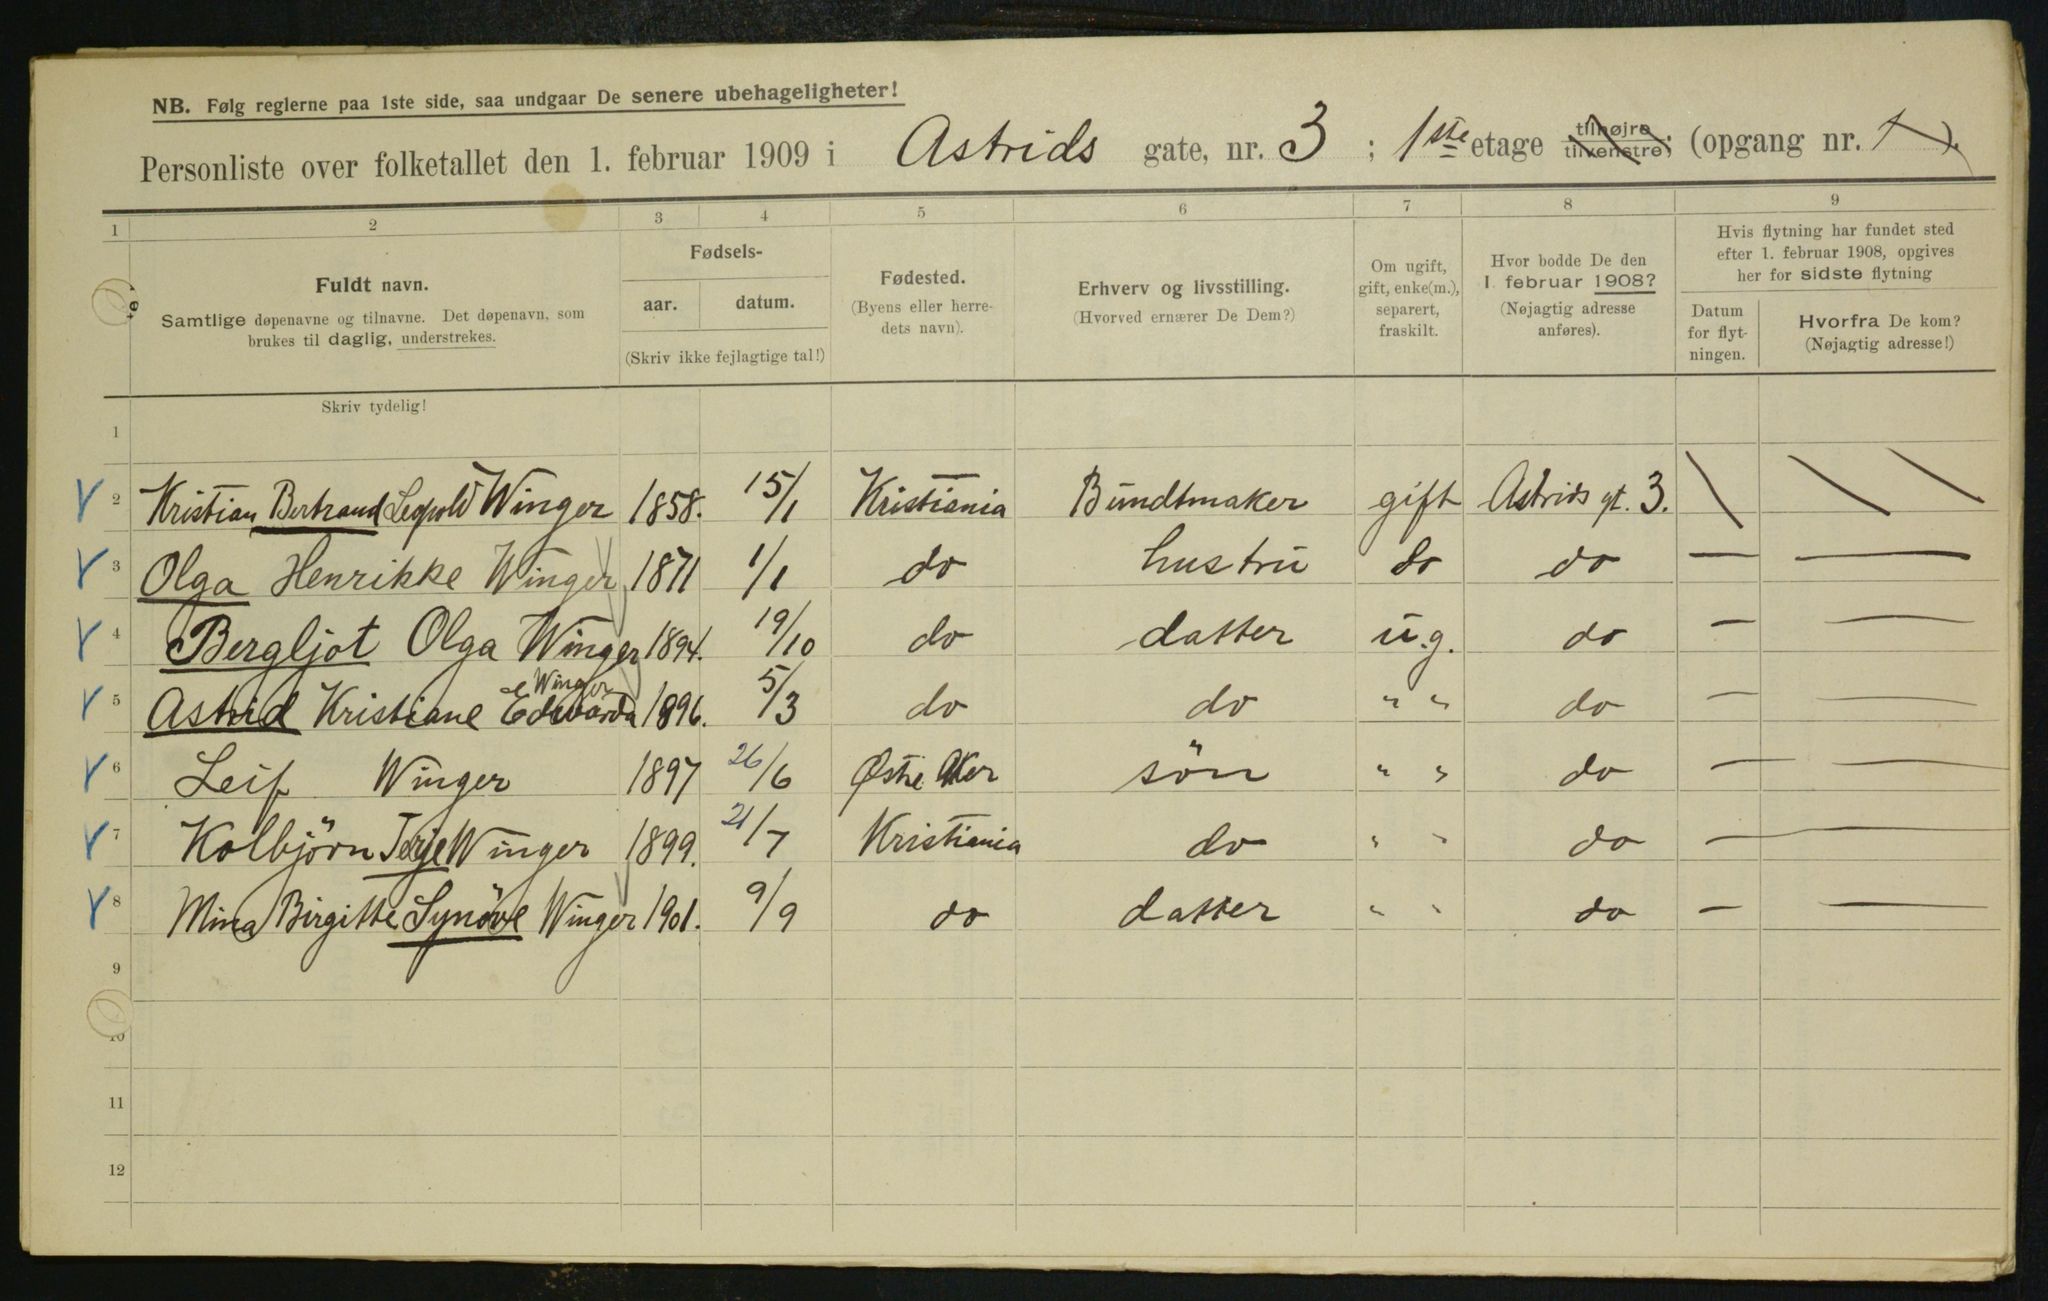 NB. Følg reglerne paa 1ste side, saa undgaar De senere ubehageligheter!
Personliste over folketallet den 1. februar 1909 i Astrids gate, nr. 3 ; 1ste etage tilhøjre, tilvenstre, ; (opgang nr. 1).
1 2 3 4 5 6 7 8 9
Fuldt navn.
Samtlige døpenavne og tilnavne. Det døpenavn, som
brukes til daglig, understrekes.
Skriv tydelig!
Fødsels-
aar. datum.
(Skriv ikke fejlagtige tal!)
Fødested.
(Byens eller herre-
dets navn).
Erhverv og livsstilling.
(Hvorved ernærer De Dem?)
Om ugift,
gift, enke(m.),
separert,
fraskilt.
Hvor bodde De den
1. februar 1908?
(Nøjagtig adresse
anføres).
Hvis flytning har fundet sted
efter 1. februar 1908, opgives
her for sidste flytning
Datum
for flyt-
ningen.
Hvorfra De kom?
(Nøjagtig adresse!)
1
2 Kristian Bertrand Leopold Winger 1858. 15/1 Kristiania Bundtmaker gift Astrids gt. 3. \ \ \
3 Olga Henrikke Winger 1871 1/1 do hustru do do — —
4 Bergljot Olga Winger 1894. 19/10 do datter u.g. do — —
5 Astrid Kristiane Edvarda Winger 1896. 5/3 do do " " do — —
6 Leif Winger 1897 26/6 Østre Aker sön " " do — —
7 Kolbjörn Terje Winger 1899. 21/7 Kristiania do " " do — —
8 Mina Birgitte Synöve Winger 1901. 9/9 do datter " " do — —
9
10
11
12